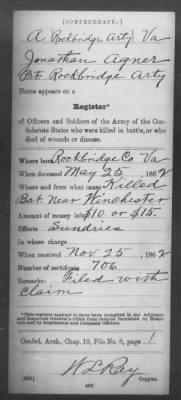 (CONFEDERATE.)
A Rockbridge Arty Va
Jonathan Agner
Bat. Rockbridge Arty
Name appears on a
Register*
of Officers and Soldiers of the Army of the Confederate States who were killed in battle, or who
died of wounds or disease.
Where born Rockbridge Co. Va
When deceased May 25, 1862
Where and from what cause Killed
Bat. Near Winchester
Amount of money left $10. or $15.
Effects Sundries
In whose charge
When received Nov 25, 1862
Number of certificate 706
Remarks: Filed with
claim
*This register appears to have been compiled in the Adjutant and Inspector General's Office from returns furnished by Hospitals and by Regimental and Company Officers.
Confed. Arch., Chap. 10, File No. 8, page 1
W L Ray
Copyist.